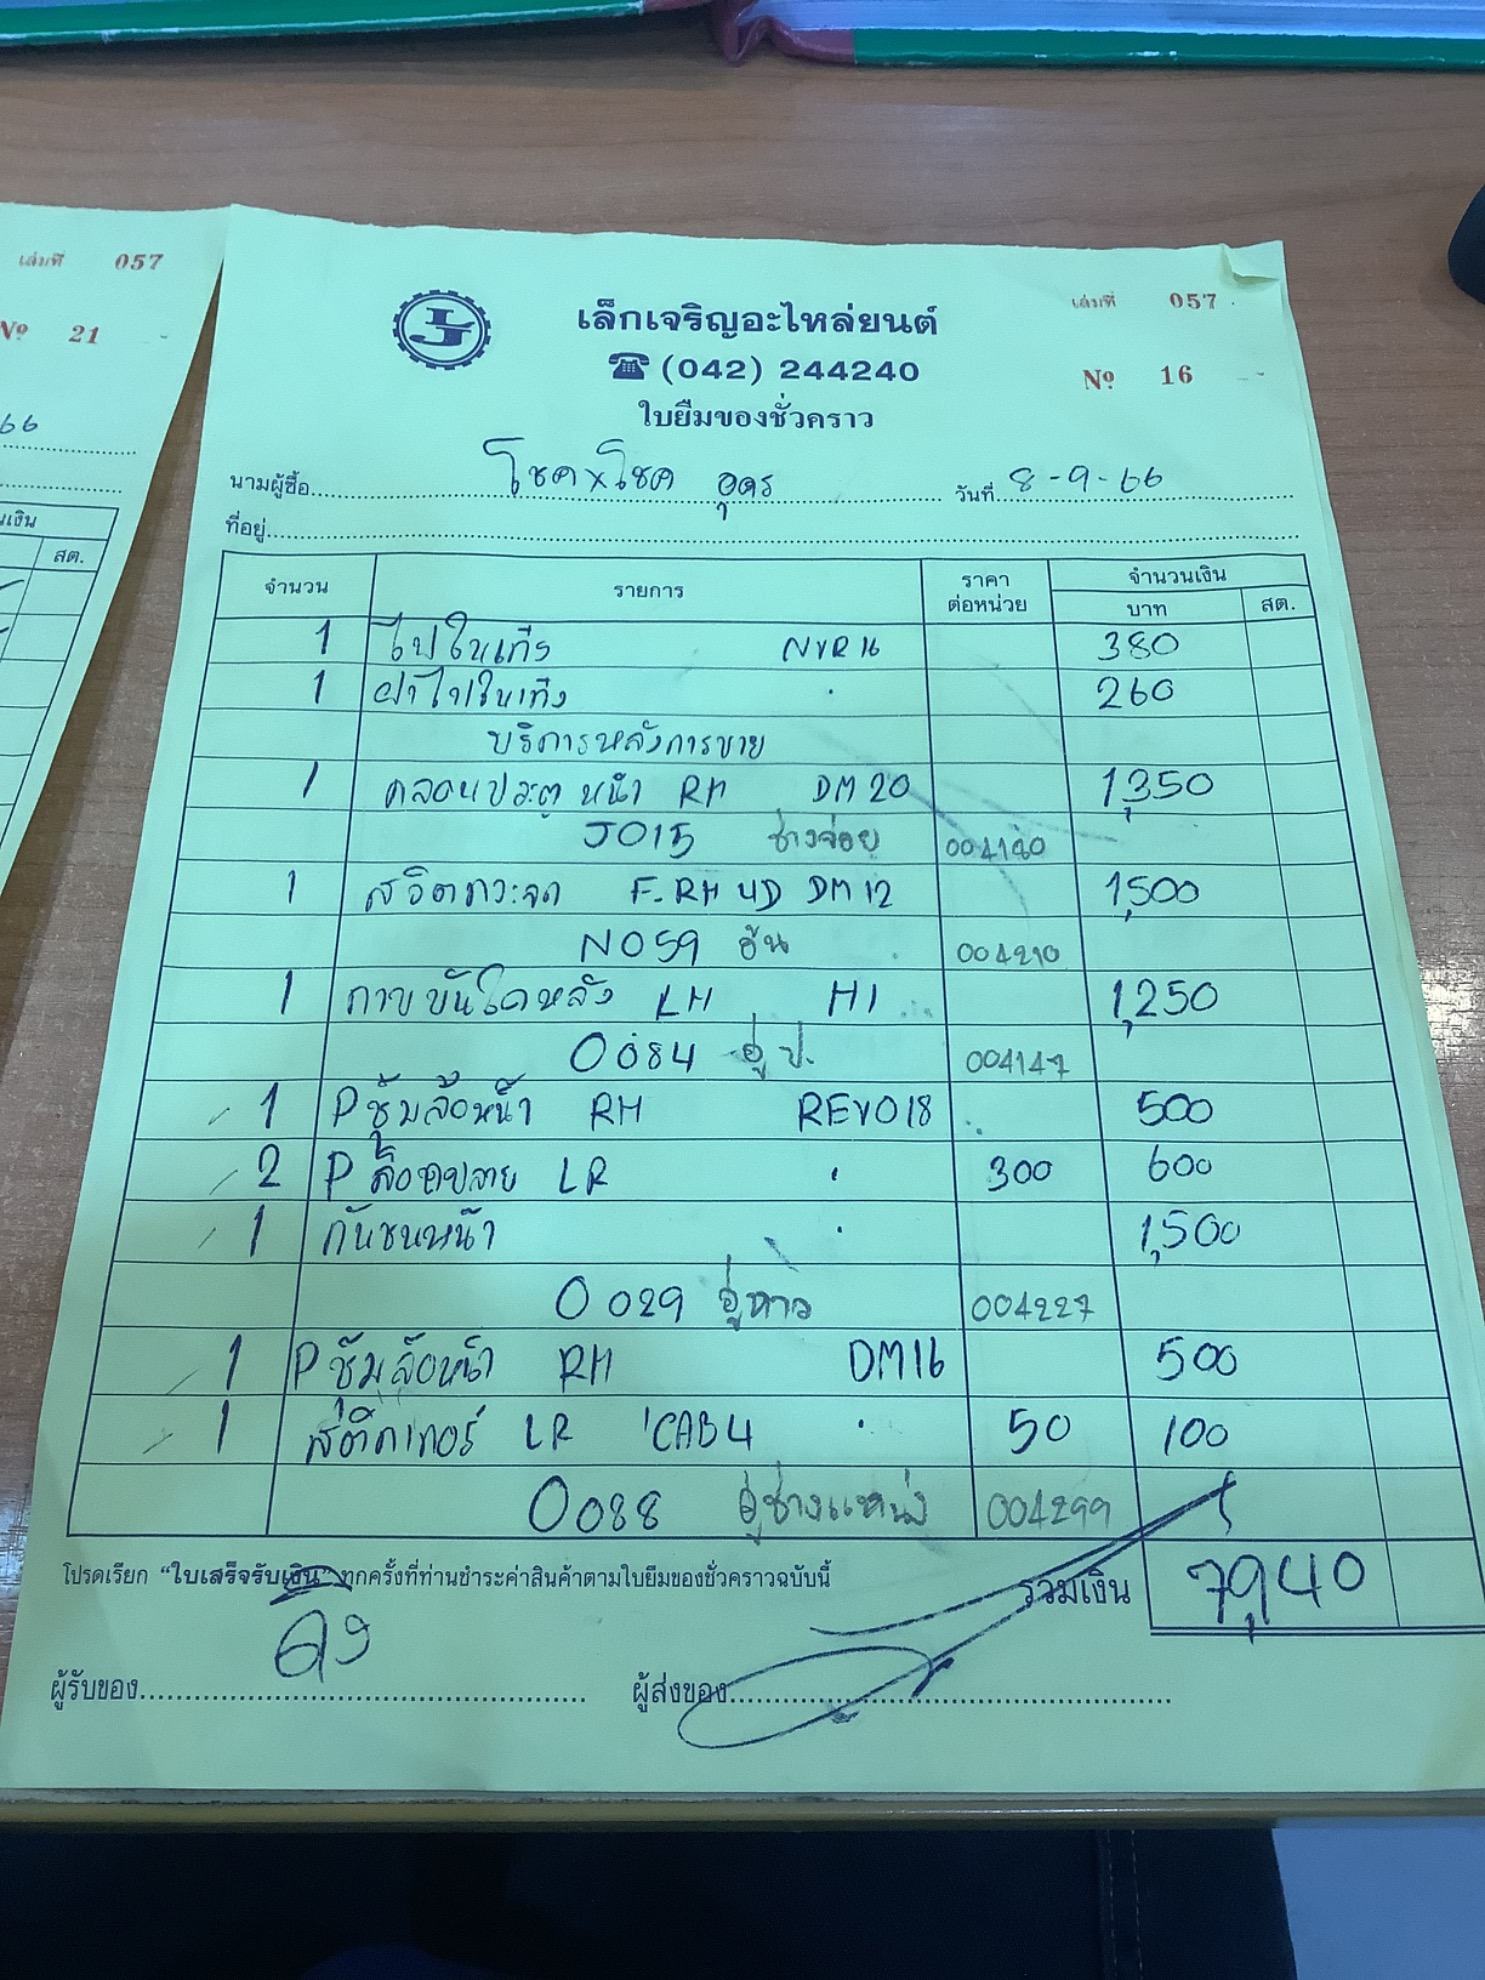 เล่มที่ 057
Nº 21
66
สต.
เล็กเจริญอะไหล่ยนต์
เล่มที่ 057
☎ (042) 244240
Nº 16
ใบยืมของชั่วคราว
นามผู้ซื้อ โชคxโชค อุดร วันที่ 8-9-66
ที่อยู่
จำนวน รายการ ราคาต่อหน่วย จำนวนเงิน
บาท สต.
1 ไฟในเก๋ง NVR16 380
1 ฝาไฟในเก๋ง " 260
บริการหลังการขาย
1 คลอนประตูหน้า RH DM20 1,350
J015 ช่างจ่อย 004180
1 สวิตกระจก F-RH 4D DM12 1,500
N059 อ้น 004210
1 กาบบันไดหลัง LH H1 1,250
0084 อู่ ป. 004147
1 Pซุ้มล้อหน้า RH REVO18 500
2 P ล็อคปลาย LR " 300 600
1 กันชนหน้า " 1,500
0029 อู่หาว 004227
1 Pซุ้มล้อหน้า RH DM16 500
1 สติกเกอร์ LR 'CAB4 " 50 100
0088 อู่ช่างแหน่ง 004299
โปรดเรียก “ใบเสร็จรับเงิน” ทุกครั้งที่ท่านชำระค่าสินค้าตามใบยืมของชั่วคราวฉบับนี้
รวมเงิน 7,940
ผู้รับของ ผู้ส่งของ